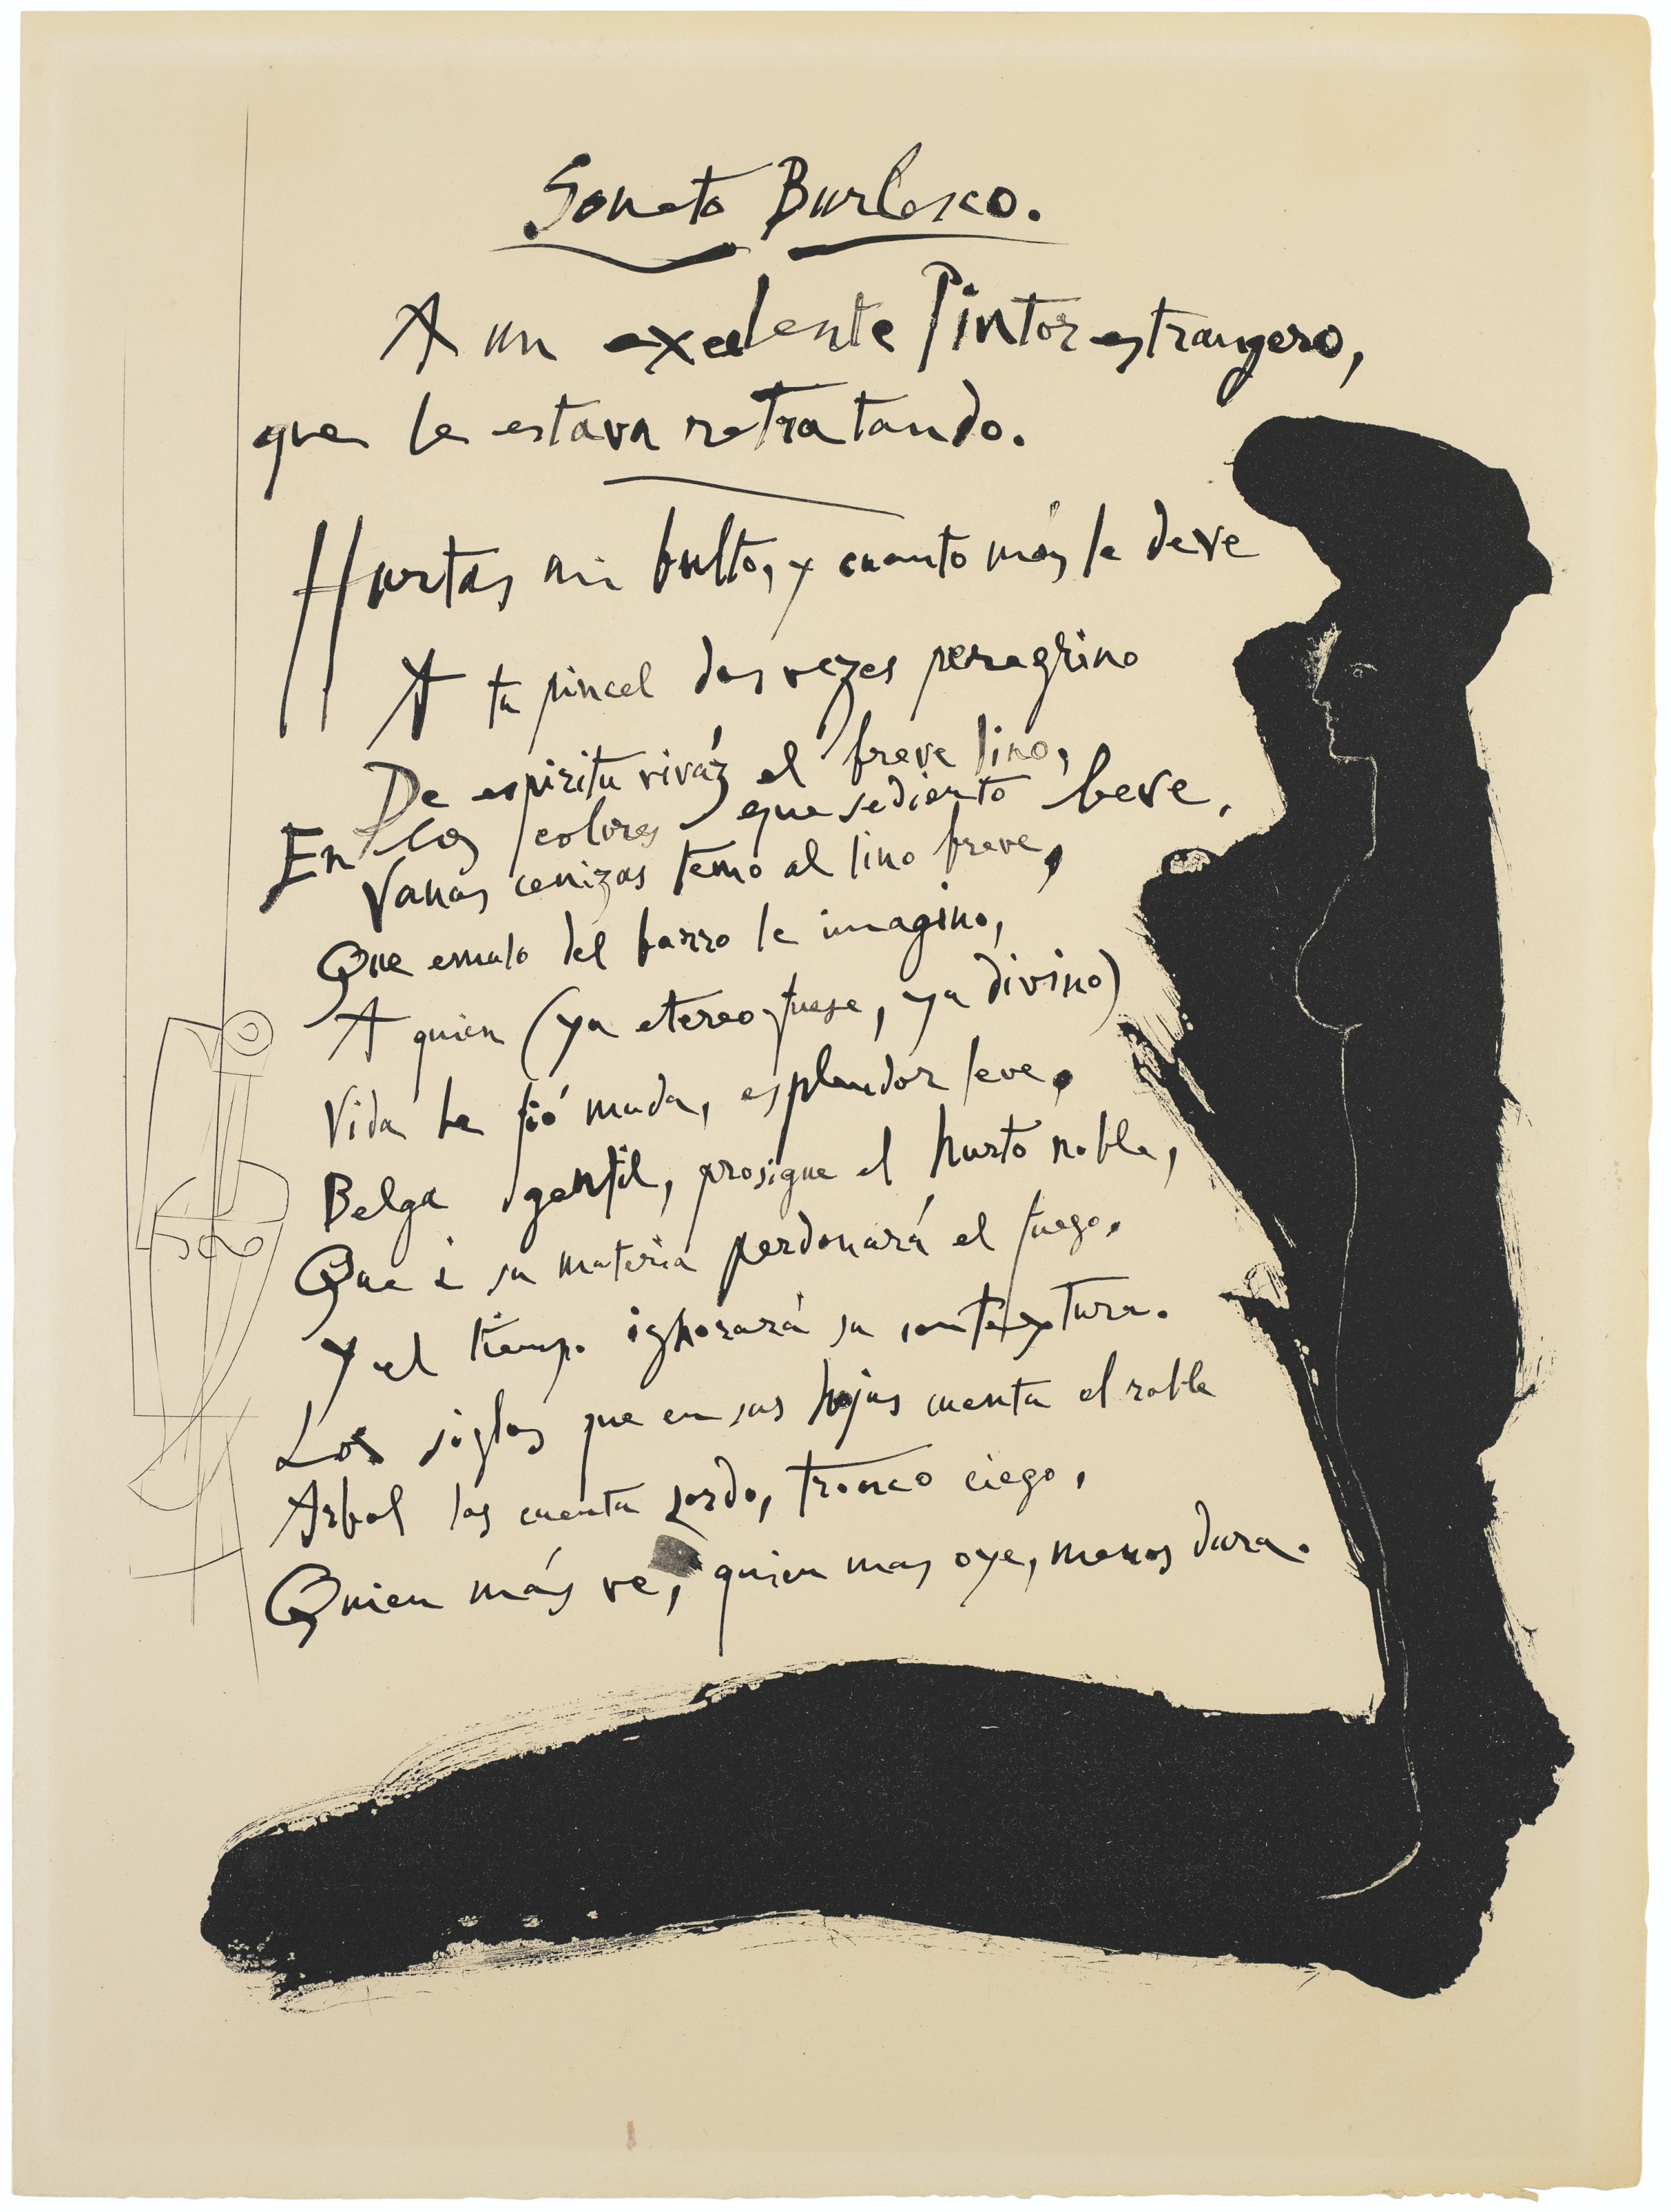 Soneto Burlesco.
A un excelente Pintor estrangero,
que le estava retratando.
Hurtas mi bulto, y cuanto más le deve
A tu pincel dos vezes peregrino
De espiritu viváz el breve lino,
En los colores que sediento beve.
Vanas cenizas temo al lino breve,
Que emulo del barro le imagino,
A quien (ya etereo fuese, ya divino)
Vida le fió muda, esplendor leve.
Belga gentil, prosigue el hurto noble,
Que à su materia perdonará el fuego,
Y el tiempo ignorará su contextura.
Los siglos que en sus hojas cuenta el roble
Arbol los cuenta sordo, tronco ciego,
Quien más ve, quien mas oye, menos dura.